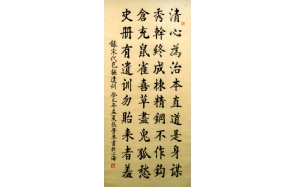 清心為治本直道是身謀
秀幹終成棟精鋼不作鈎
倉充鼠雀喜草盡兔狐愁
史冊有遺訓勿貽來者羞
錄宋代包拯遺訓